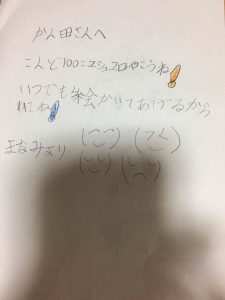 かん田さんへ
こんど100こエシュスロやこうね!
いつでも絵かいてあげるから
れてね!
まなみより